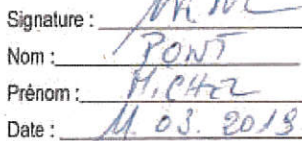 Signature :
Nom : PONT
Prénom : MICHEL
Date : 11. 03. 2019